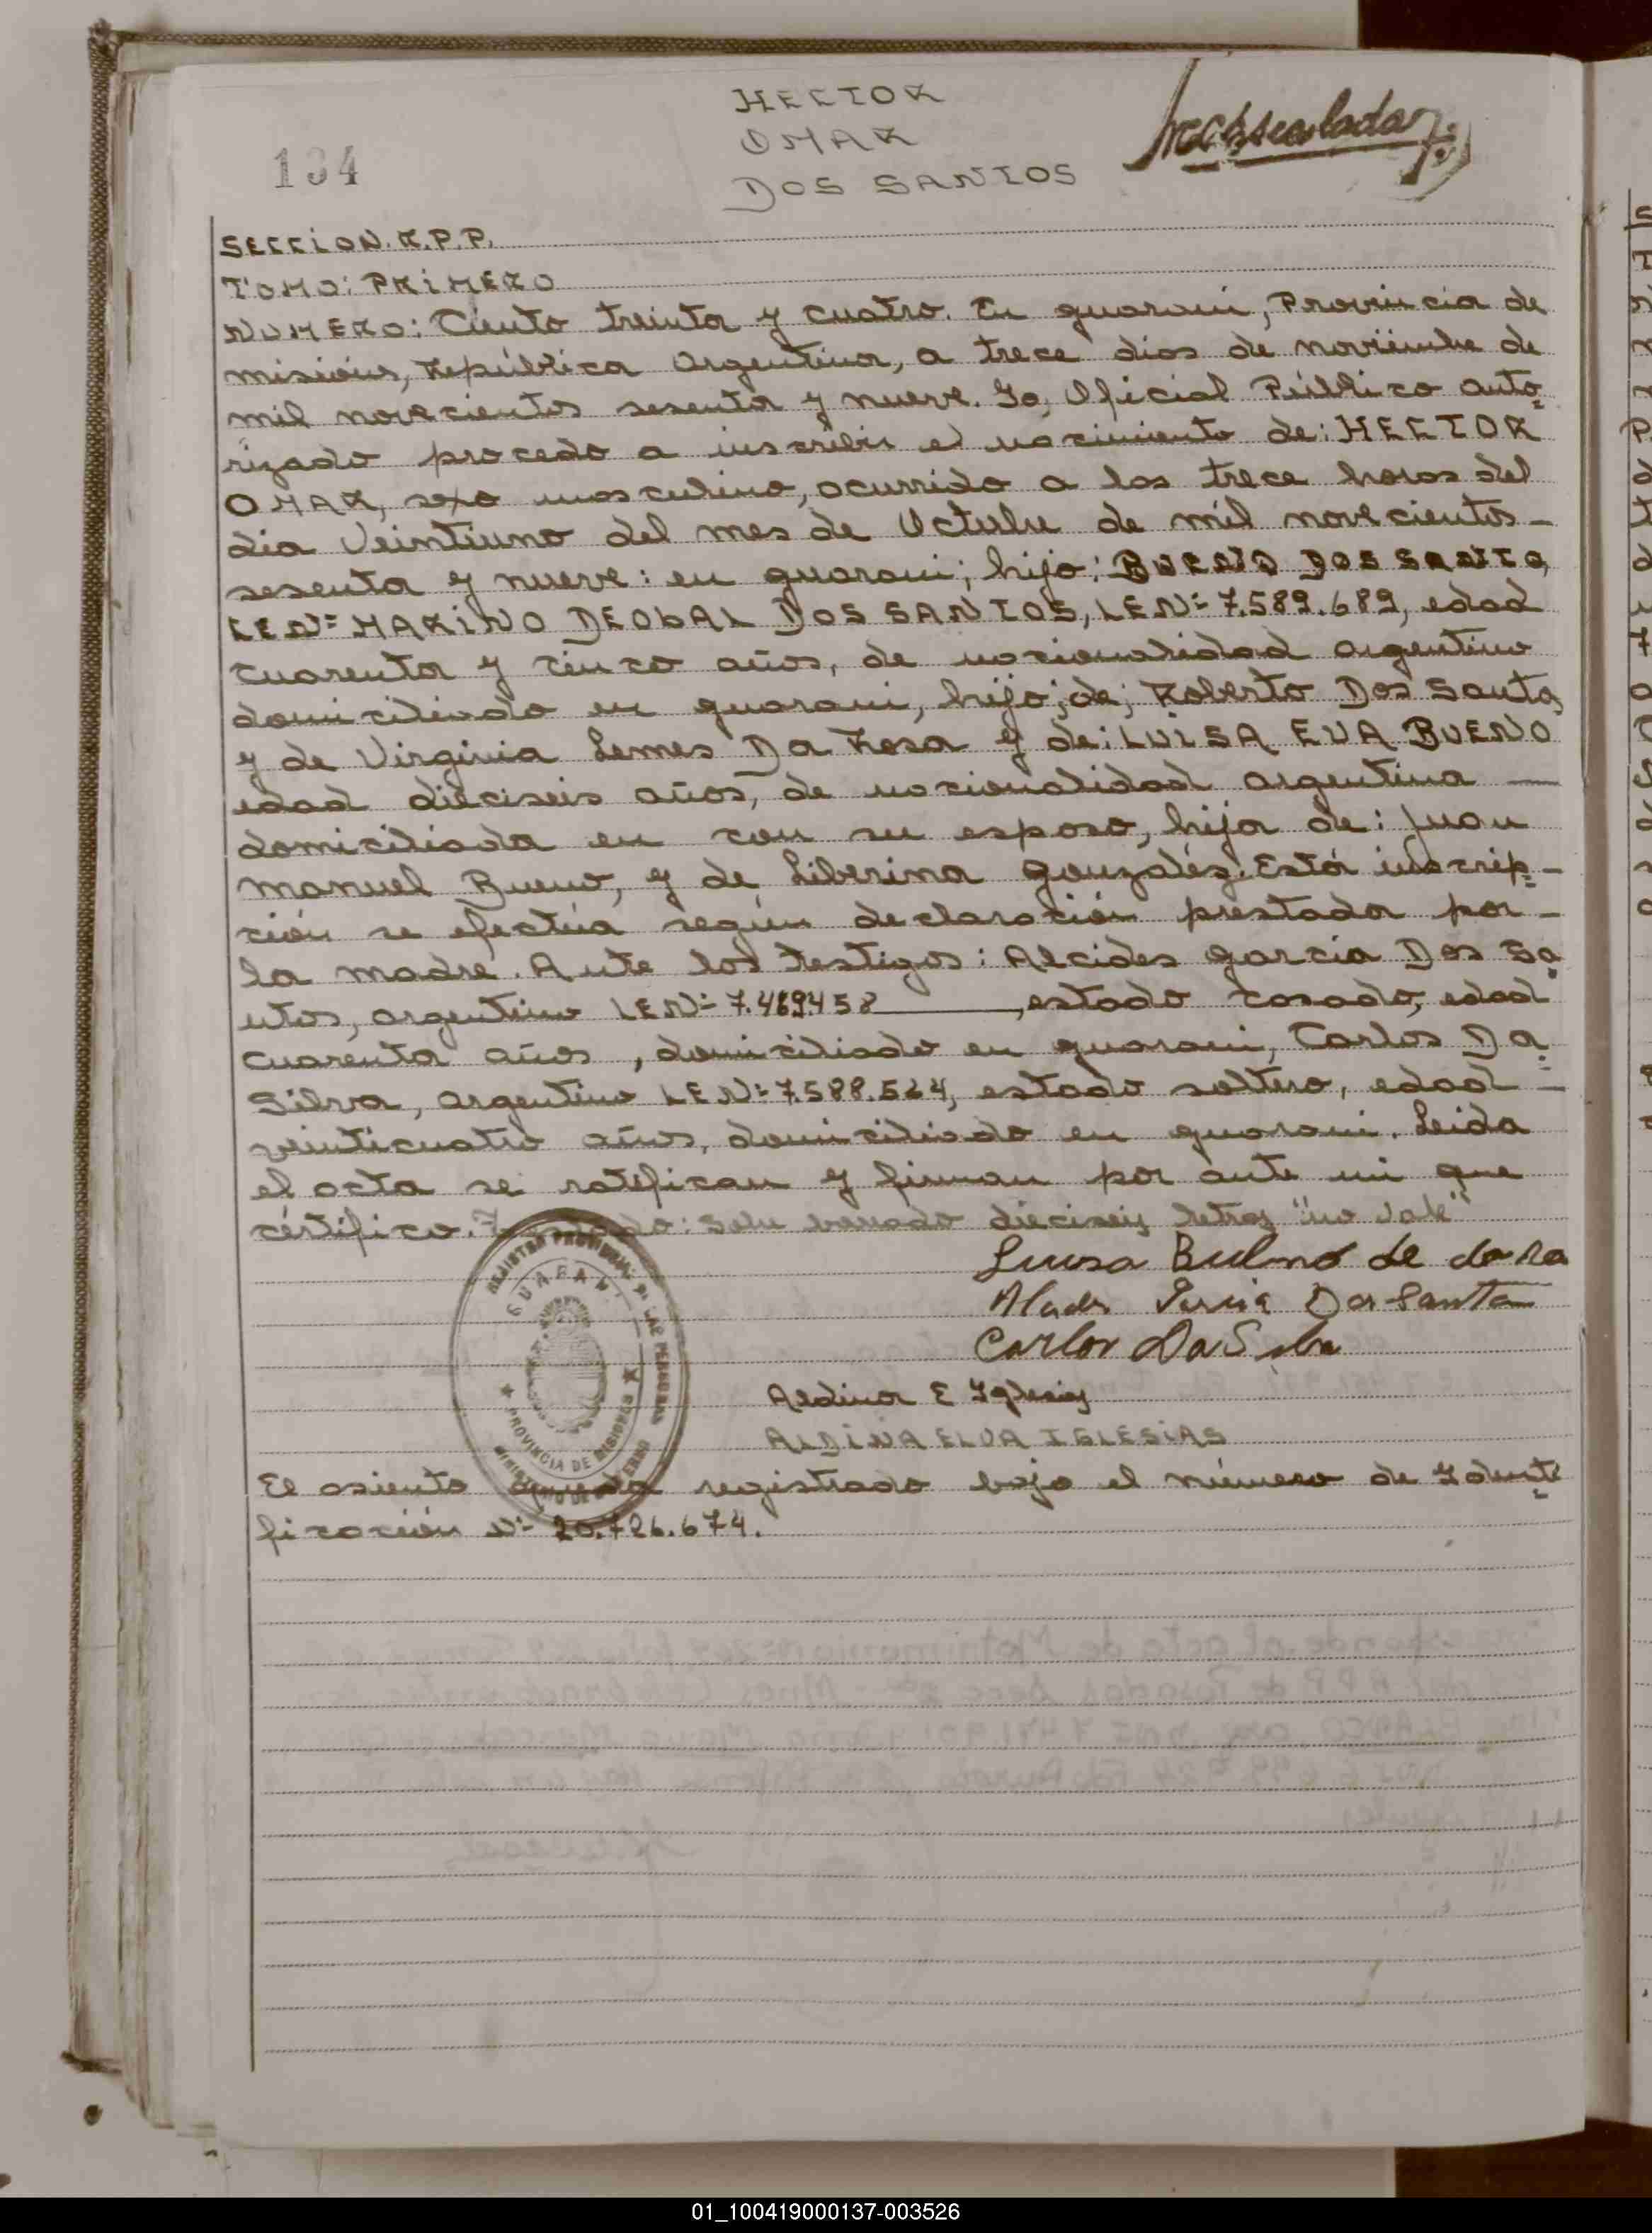 HECTOR
OMAR
DOS SANTOS
134
SECCION. R.P.P.
TOMO: PRIMERO
NUMERO: Ciento treinta y cuatro. En guaraní, Provincia de
misiones, República Argentina, a trece dias de noviembre de
mil novecientos sesenta y nueve. Yo, Oficial Público auto-
rizado procedo a inscribir el nacimiento de: HECTOR
OMAR, sexo masculino, ocurrido a las trece horas del
dia Veintiuno del mes de Octubre de mil novecientos-
sesenta y nueve: en guaraní; hijo: DOS SANTOS
LEN= MARINO DEOBAL DOS SANTOS, LEN= 7.589.689, edad
cuarenta y cinco años, de nacionalidad argentino
domiciliado en guaraní, hijo; de; Roberto Dos Santos
y de Virginia Lemes Da Rosa y de: LUISA EVA BUENO
edad dieciseis años, de nacionalidad argentina —
domiciliada en con su esposo, hija de: Juan
manuel Bueno, y de Liberina Gonzáles. Esta inscrip-
ción se efectúa según declaración prestada por-
la madre. Ante los testigos: Alcides Garcia Dos Sa-
ntos, argentino LEN= 7.469.458 ——, estado casado, edad
cuarenta años, domiciliado en guaraní, Carlos Da=
Silva, argentino LEN= 7.588.524, estado soltero, edad-
veinticuatro años, domiciliado en guaraní. Leida
el acta se ratifican y firman por ante mi que
certifico. borrado dieciseis letras "no vale"
Luisa de
Garcia Dos Santos
Carlos Da Silva
Aldina E Iglesias
ALDINA ELVA IGLESIAS
REGISTRO PROVINCIAL DE LAS PERSONAS
GUARANI
PROVINCIA DE MISIONES
El asiento queda registrado bajo el número de Identi-
ficación N= 20.726.674.
01_100419000137-003526